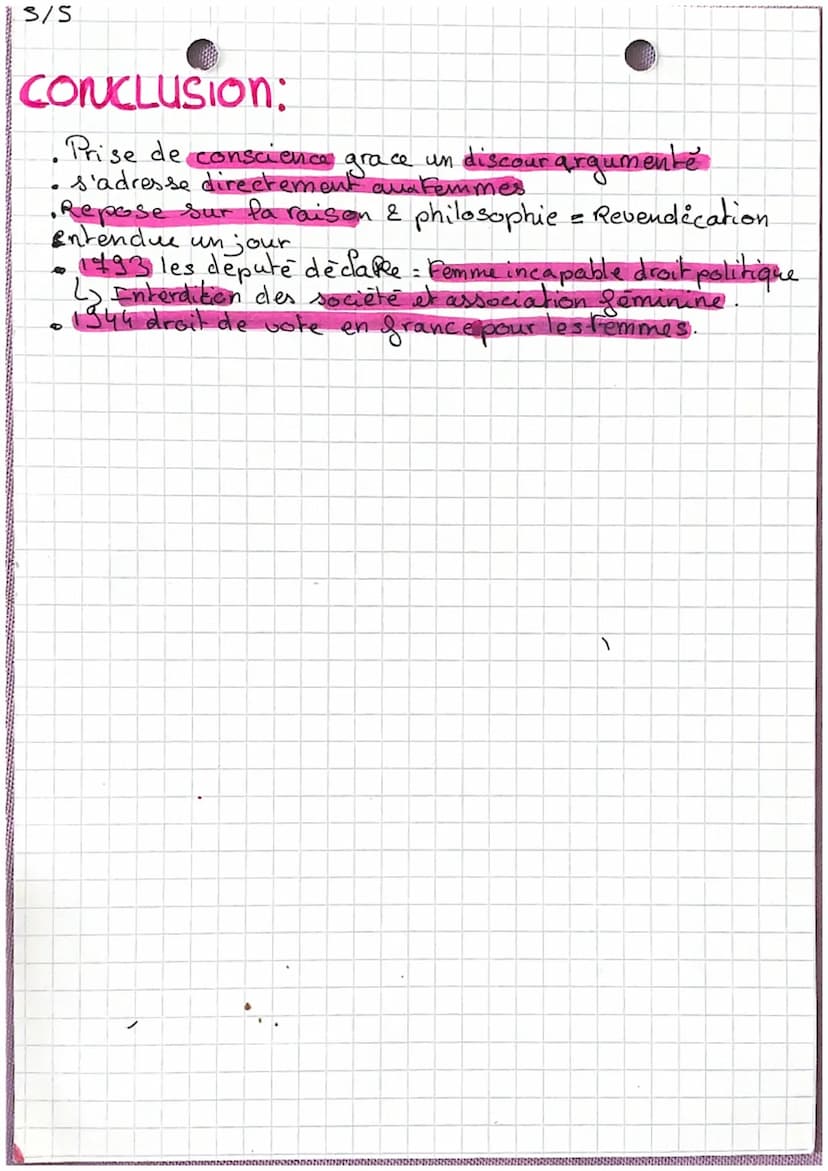 3/5
CONCLUSION:
. Prise de conscience grace un discour argumenté
. s'adresse directement aux femmes
. Repose sur la raison & philosophie = Revendication
Entendue un jour
• 1793 les député déclare : Femme incapable droit politique
↳ Interdition des société et association féminine.
• 1944 droit de vote en france pour les femmes.